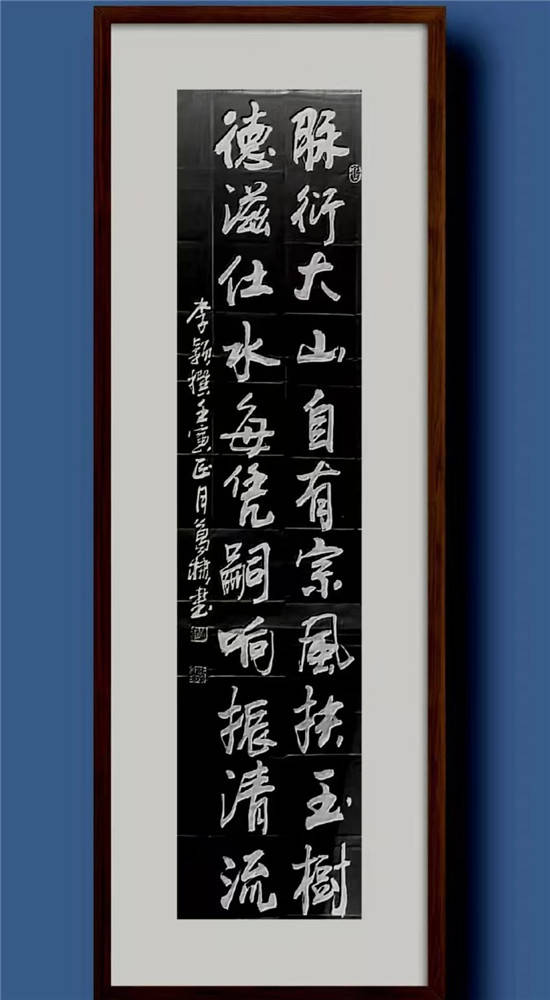 脉衍大山自有宗風扶玉樹
德滋仕水每凭嗣响振清流
李颖撰壬寅正月葛棣書